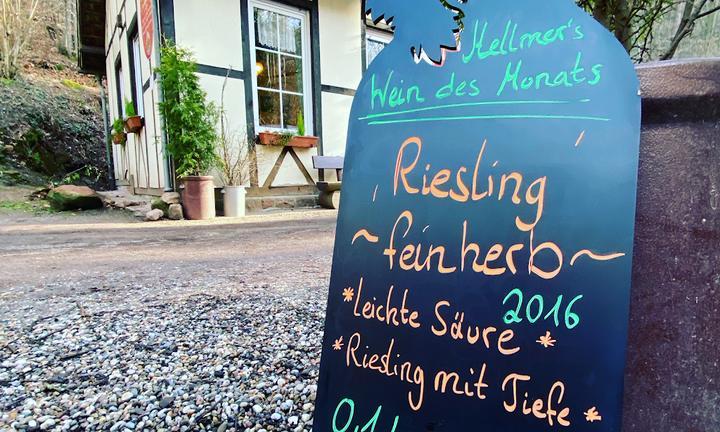 Hellmer's
Wein des Monats
Riesling
~ feinherb ~
2016
*Leichte Säure *
*Riesling mit Tiefe *
0,1